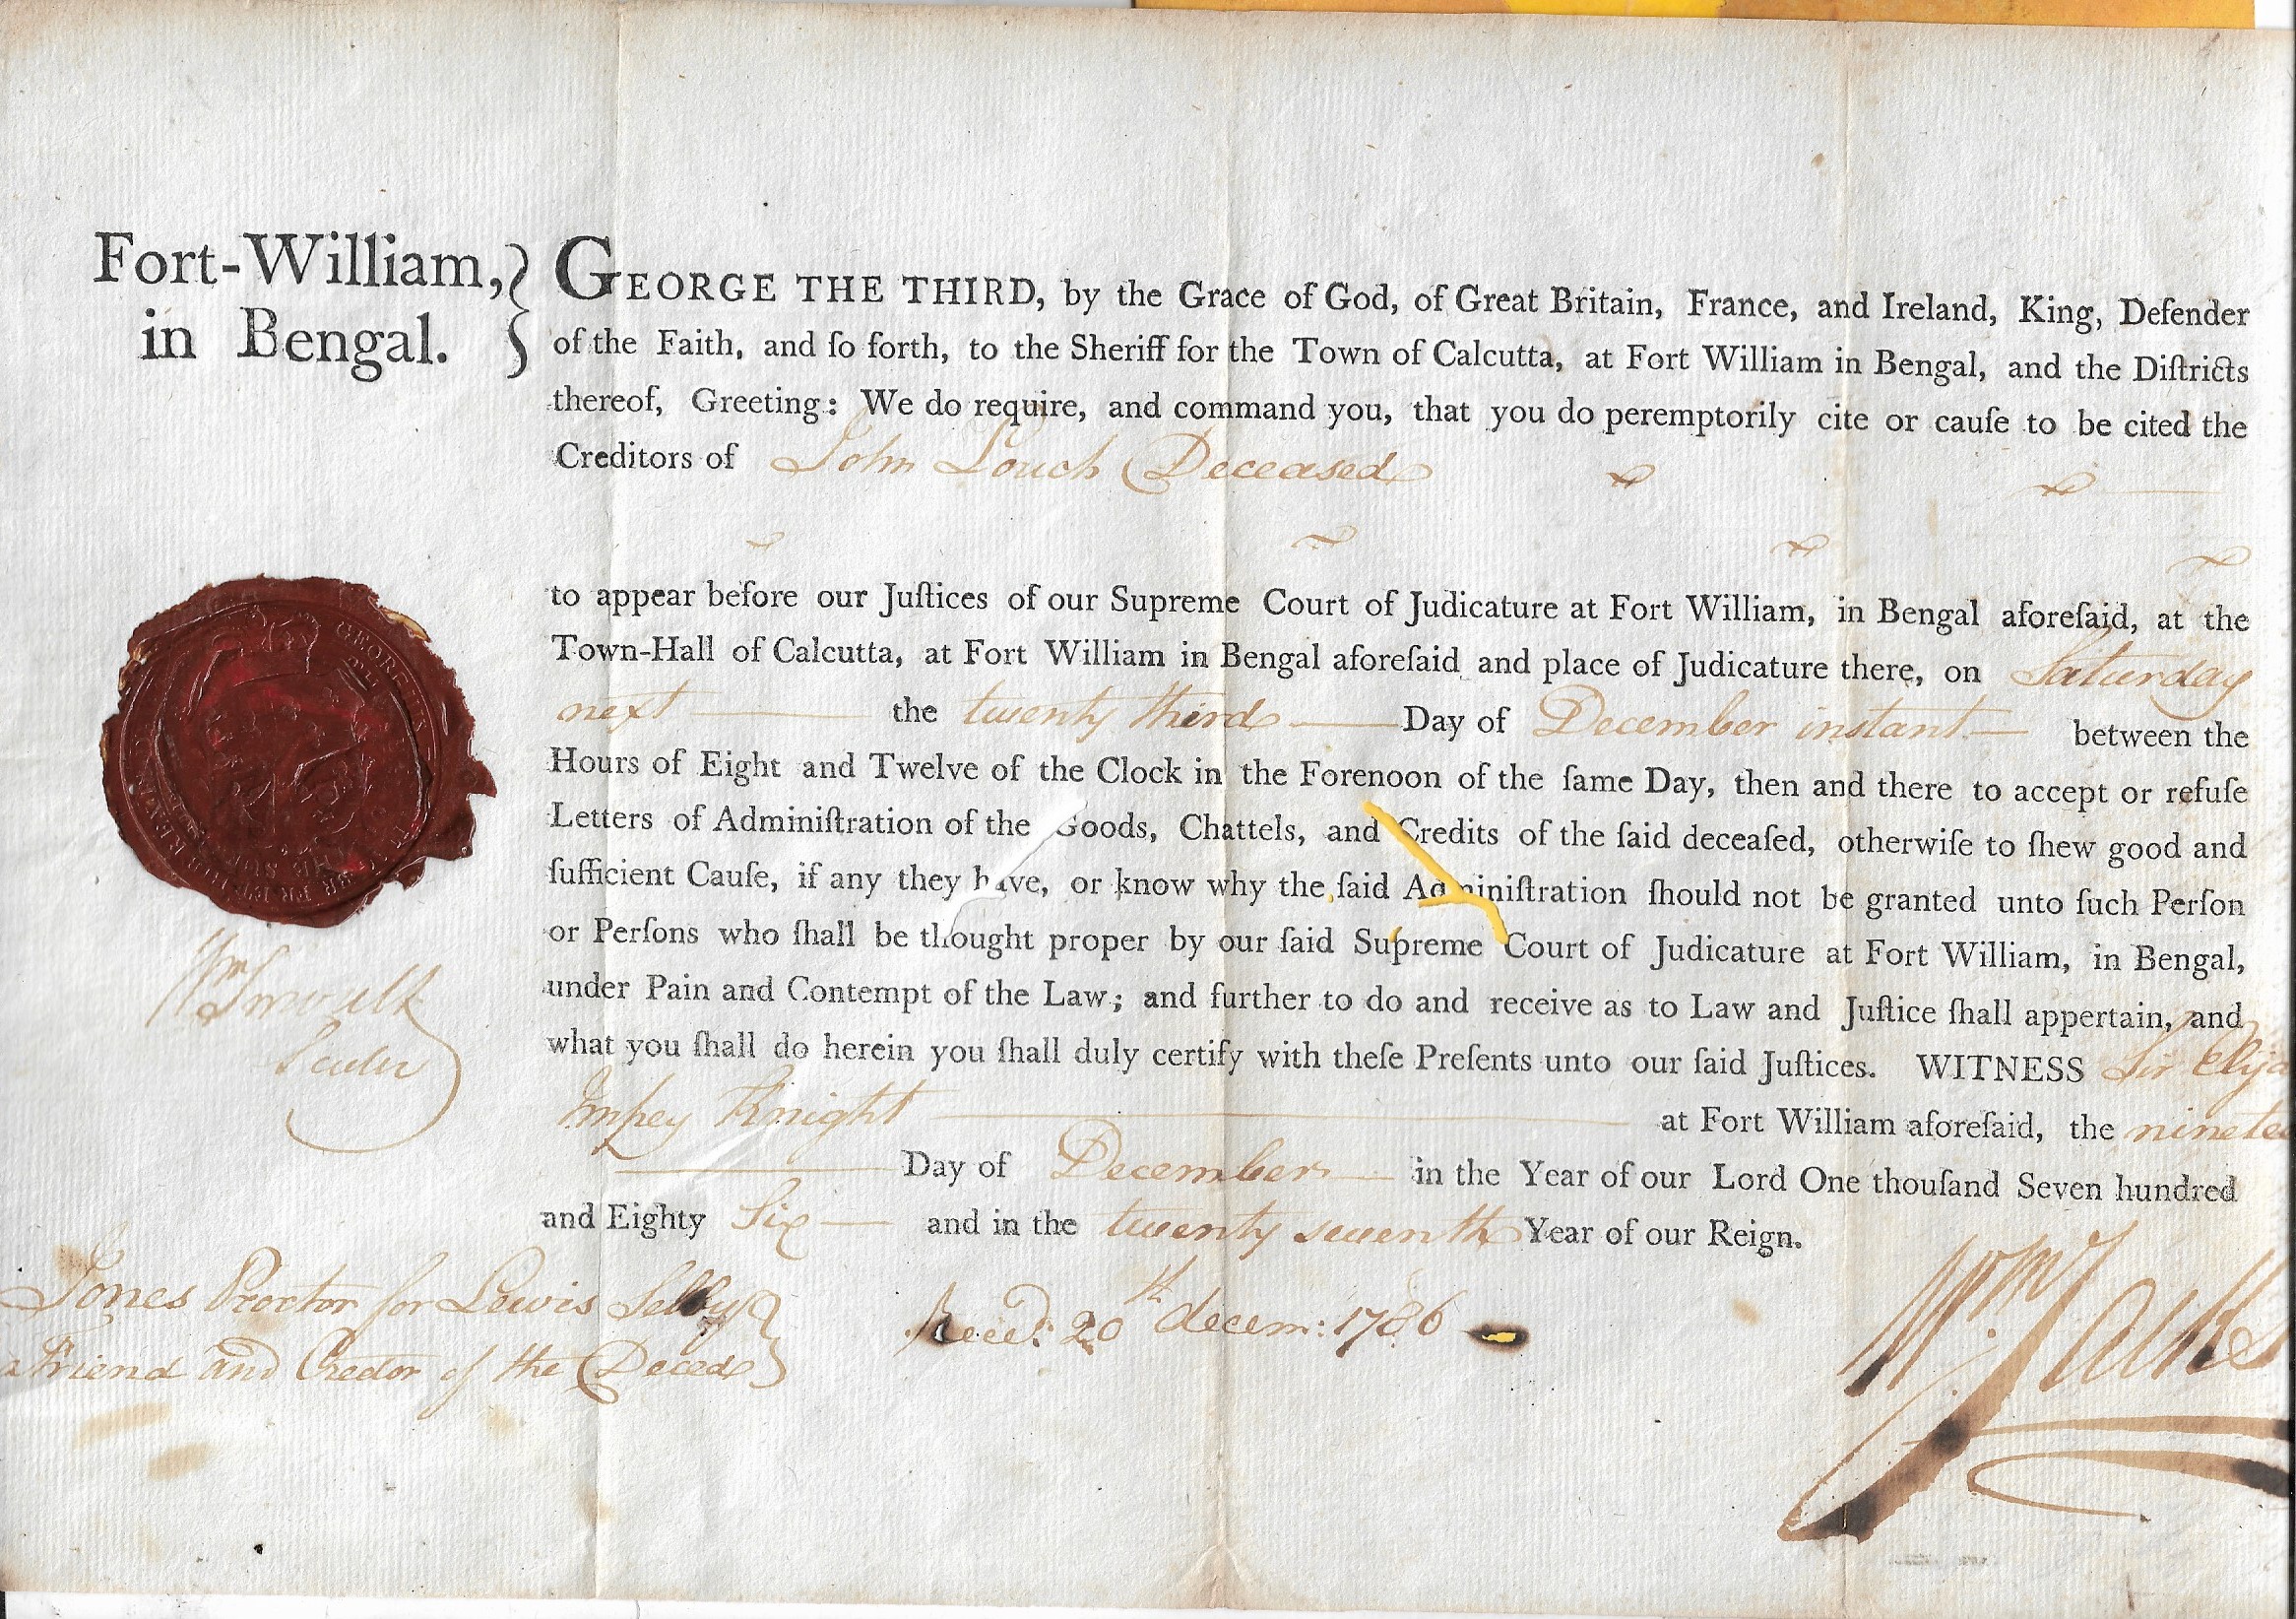 Fort-William,
in Bengal.
GEORGE THE THIRD, by the Grace of God, of Great Britain, France, and Ireland, King, Defender
of the Faith, and ſo forth, to the Sheriff for the Town of Calcutta, at Fort William in Bengal, and the Diſtricts
thereof, Greeting: We do require, and command you, that you do peremptorily cite or cauſe to be cited the
Creditors of John Louch Deceased
to appear before our Juſtices of our Supreme Court of Judicature at Fort William, in Bengal aforeſaid, at the
Town-Hall of Calcutta, at Fort William in Bengal aforeſaid and place of Judicature there, on Saturday
next the twenty third Day of December instant between the
Hours of Eight and Twelve of the Clock in the Forenoon of the ſame Day, then and there to accept or refuſe
Letters of Adminiſtration of the Goods, Chattels, and Credits of the ſaid deceaſed, otherwiſe to ſhew good and
ſufficient Cauſe, if any they have, or know why the ſaid Adminiſtration ſhould not be granted unto ſuch Perſon
or Perſons who ſhall be thought proper by our ſaid Supreme Court of Judicature at Fort William, in Bengal,
under Pain and Contempt of the Law; and further to do and receive as to Law and Juſtice ſhall appertain, and
what you ſhall do herein you ſhall duly certify with theſe Preſents unto our ſaid Juſtices. WITNESS Sir Elija
Impey Knight at Fort William aforeſaid, the ninetee
Day of December in the Year of our Lord One thouſand Seven hundred
and Eighty Six and in the twenty seventh Year of our Reign.
Wm
Sealer
Jones Proctor for Lewis Selby
a Friend and Credor of the Deced
Reced: 20th decem: 1786
Wm